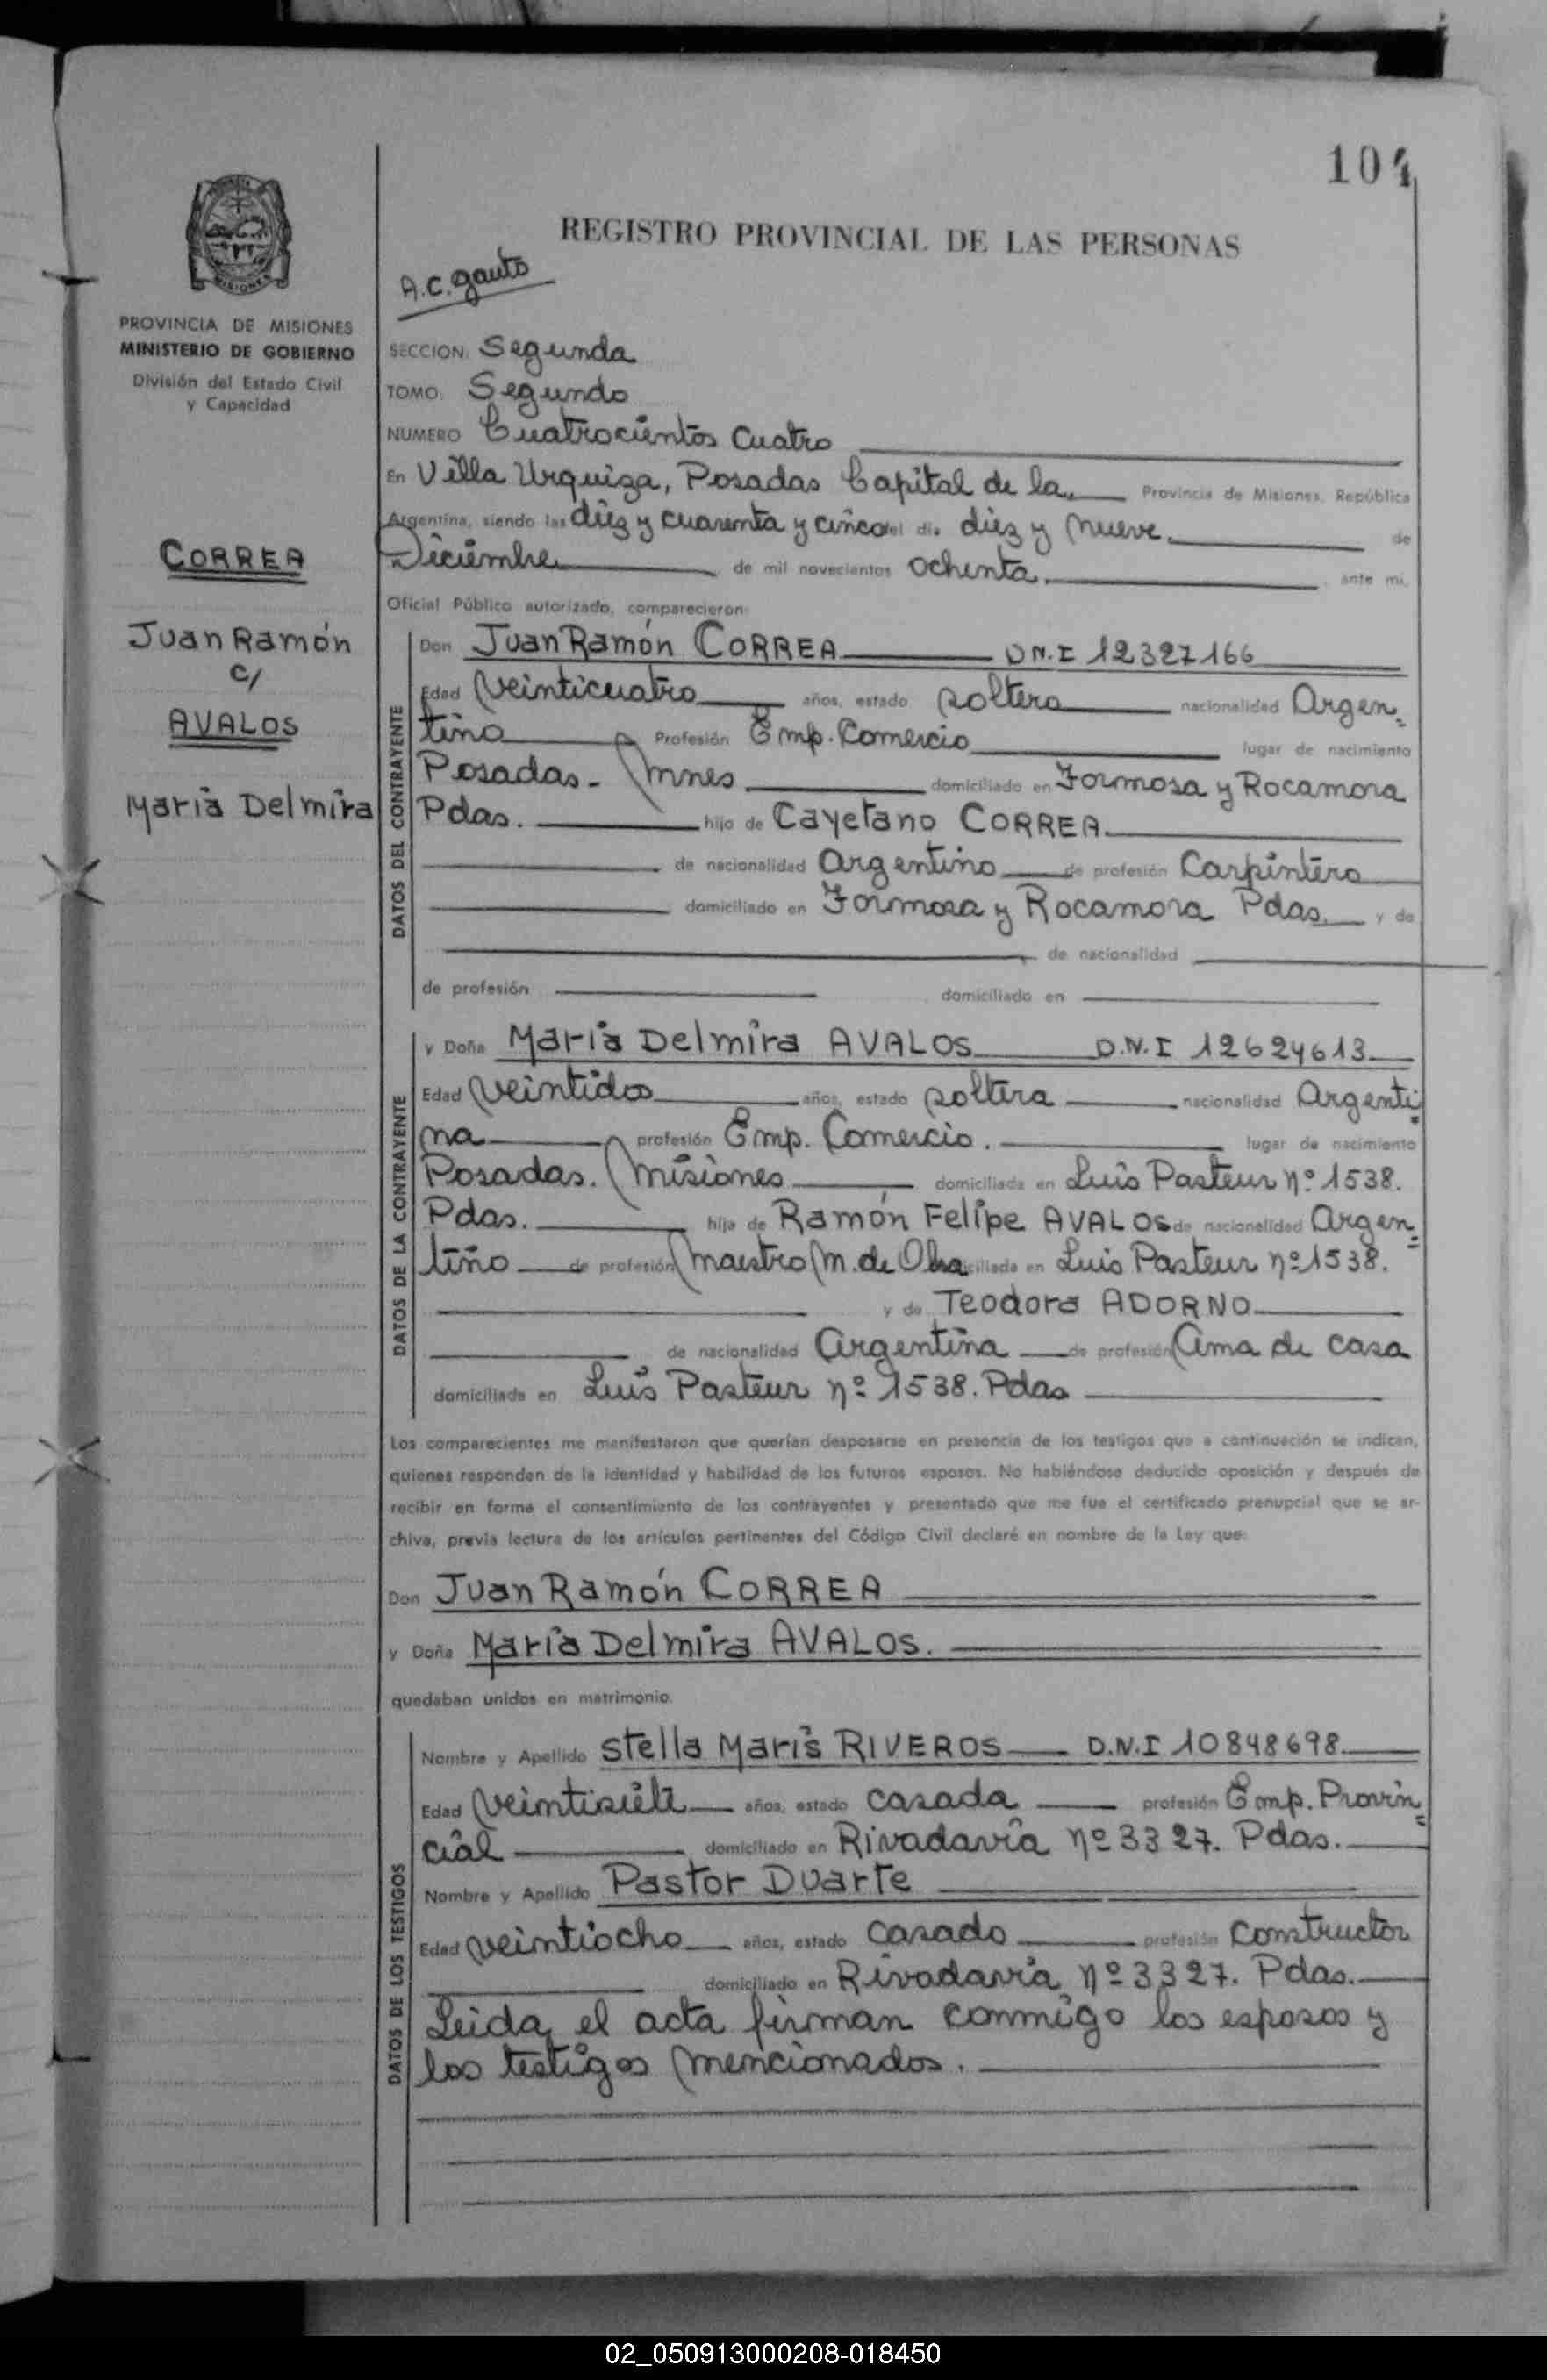 104
REGISTRO PROVINCIAL DE LAS PERSONAS
A.C. Gauto
MISIONES
PROVINCIA DE MISIONES
MINISTERIO DE GOBIERNO
División del Estado Civil
y Capacidad
CORREA
Juan Ramón
c/
AVALOS
María Delmira
SECCION: Segunda
TOMO: Segundo
NUMERO Cuatrocientos Cuatro
En Villa Urquiza, Posadas Capital de la Provincia de Misiones, República
Argentina, siendo las diez y cuarenta y cinco del día diez y nueve de
Diciembre de mil novecientos ochenta ante mi,
Oficial Público autorizado, comparecieron:
DATOS DEL CONTRAYENTE
Don Juan Ramón CORREA D.N.I 12327166
Edad veinticuatro años, estado soltero nacionalidad Argen=
tino Profesión Emp. Comercio lugar de nacimiento
Posadas - Mnes domiciliado en Formosa y Rocamora
Pdas. hijo de Cayetano CORREA
de nacionalidad Argentino de profesión Carpintero
domiciliado en Formosa y Rocamora Pdas. y de
de nacionalidad
de profesión domiciliado en
DATOS DE LA CONTRAYENTE
y Doña María Delmira AVALOS D.N.I 12624613
Edad veintidos años, estado soltera nacionalidad Argenti=
na profesión Emp. Comercio. lugar de nacimiento
Posadas. Misiones domiciliada en Luis Pasteur nº 1538.
Pdas. hija de Ramón Felipe AVALOS de nacionalidad Argen=
tino de profesión Maestro M. de Obra domiciliado en Luis Pasteur nº 1538.
y de Teodora ADORNO
de nacionalidad Argentina de profesión Ama de casa
domiciliada en Luis Pasteur nº 1538. Pdas
Los comparecientes me manifestaron que querían desposarse en presencia de los testigos que a continuación se indican,
quienes responden de la identidad y habilidad de los futuros esposos. No habiéndose deducido oposición y después de
recibir en forma el consentimiento de los contrayentes y presentado que me fue el certificado prenupcial que se ar-
chiva, previa lectura de los artículos pertinentes del Código Civil declaré en nombre de la Ley que:
Don Juan Ramón CORREA
y Doña María Delmira AVALOS.
quedaban unidos en matrimonio.
DATOS DE LOS TESTIGOS
Nombre y Apellido Stella Maris RIVEROS D.N.I 10848698
Edad veintisiete años, estado casada profesión Emp. Provin=
cial domiciliado en Rivadavia nº 3327. Pdas.
Nombre y Apellido Pastor Duarte
Edad veintiocho años, estado casado profesión Constructor
domiciliado en Rivadavia nº 3327. Pdas.
Leida el acta firman conmigo los esposos y
los testigos mencionados.
02_050913000208-018450